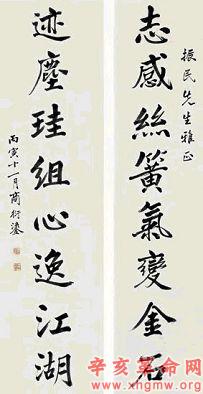 振民先生雅正
志感絲簧氣變金石
迹塵珪組心逸江湖
丙寅十一月商衍鎏
辛亥革命网
www.xhgmw.org